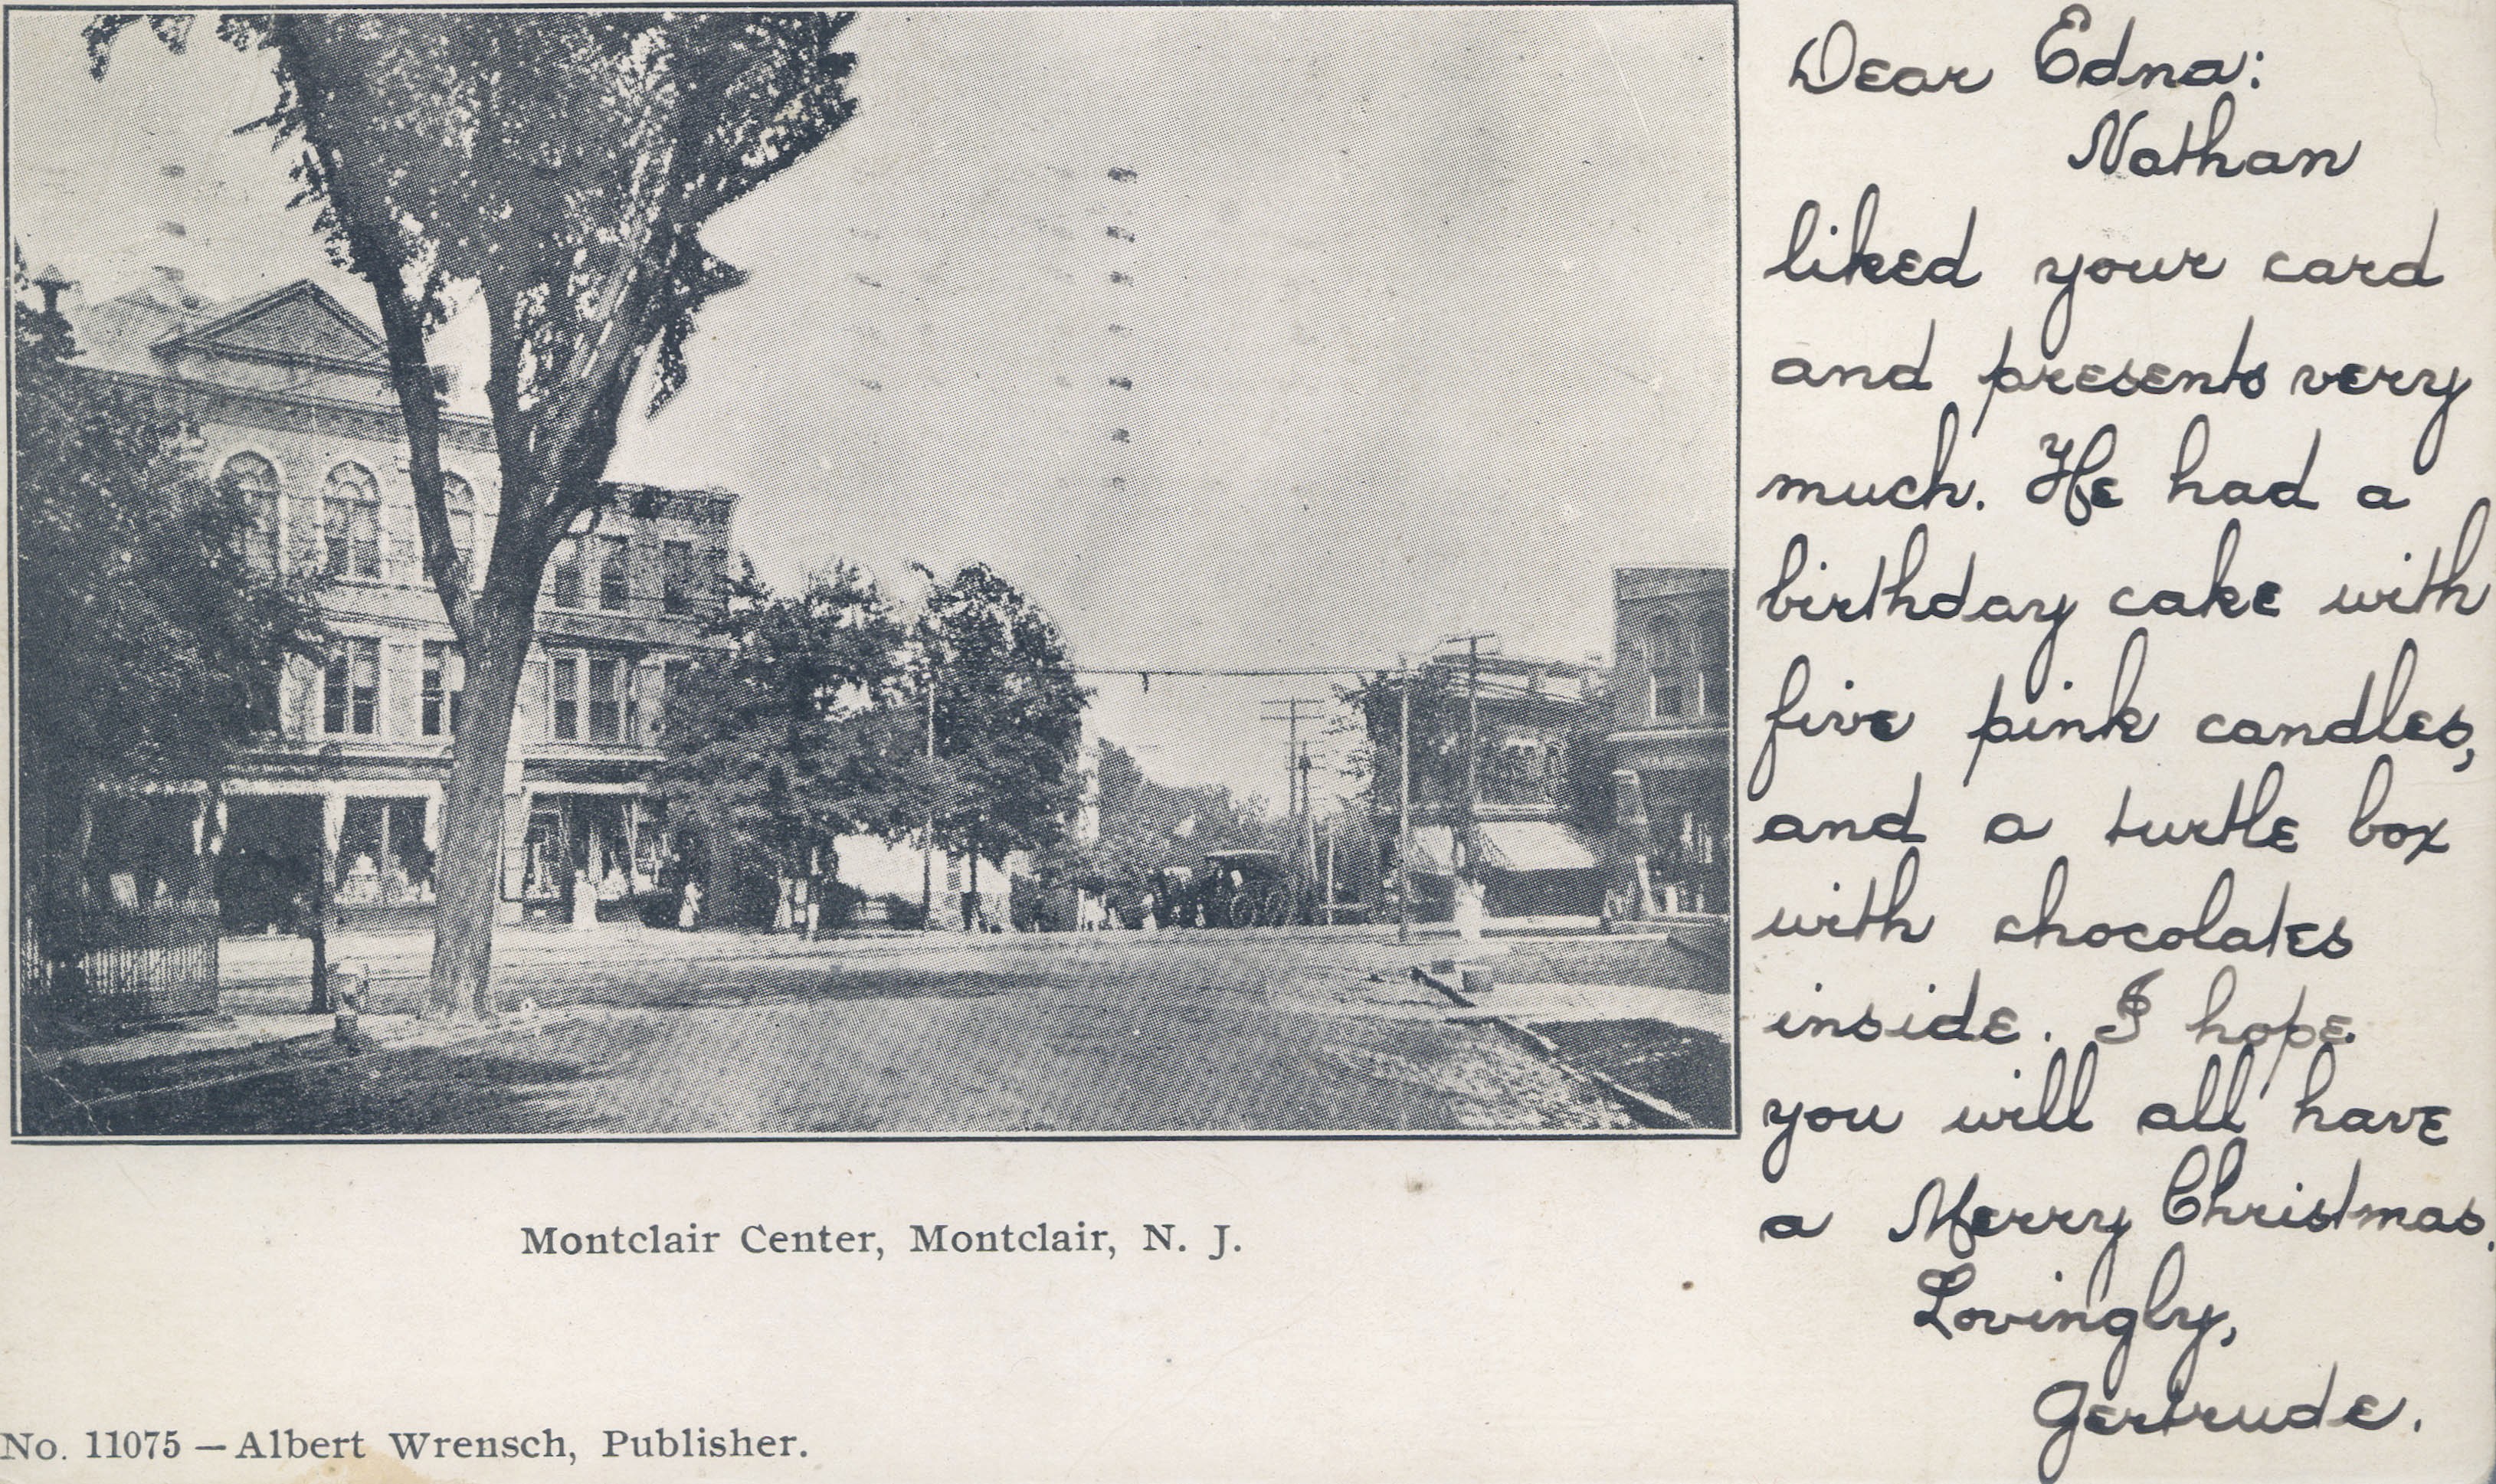 Dear Edna:
Nathan
liked your card
and presents very
much. He had a
birthday cake with
five pink candles,
and a turtle box
with chocolates
inside. I hope
you will all have
a Merry Christmas.
Lovingly,
Gertrude.
Montclair Center, Montclair, N. J.
No. 11075 — Albert Wrensch, Publisher.